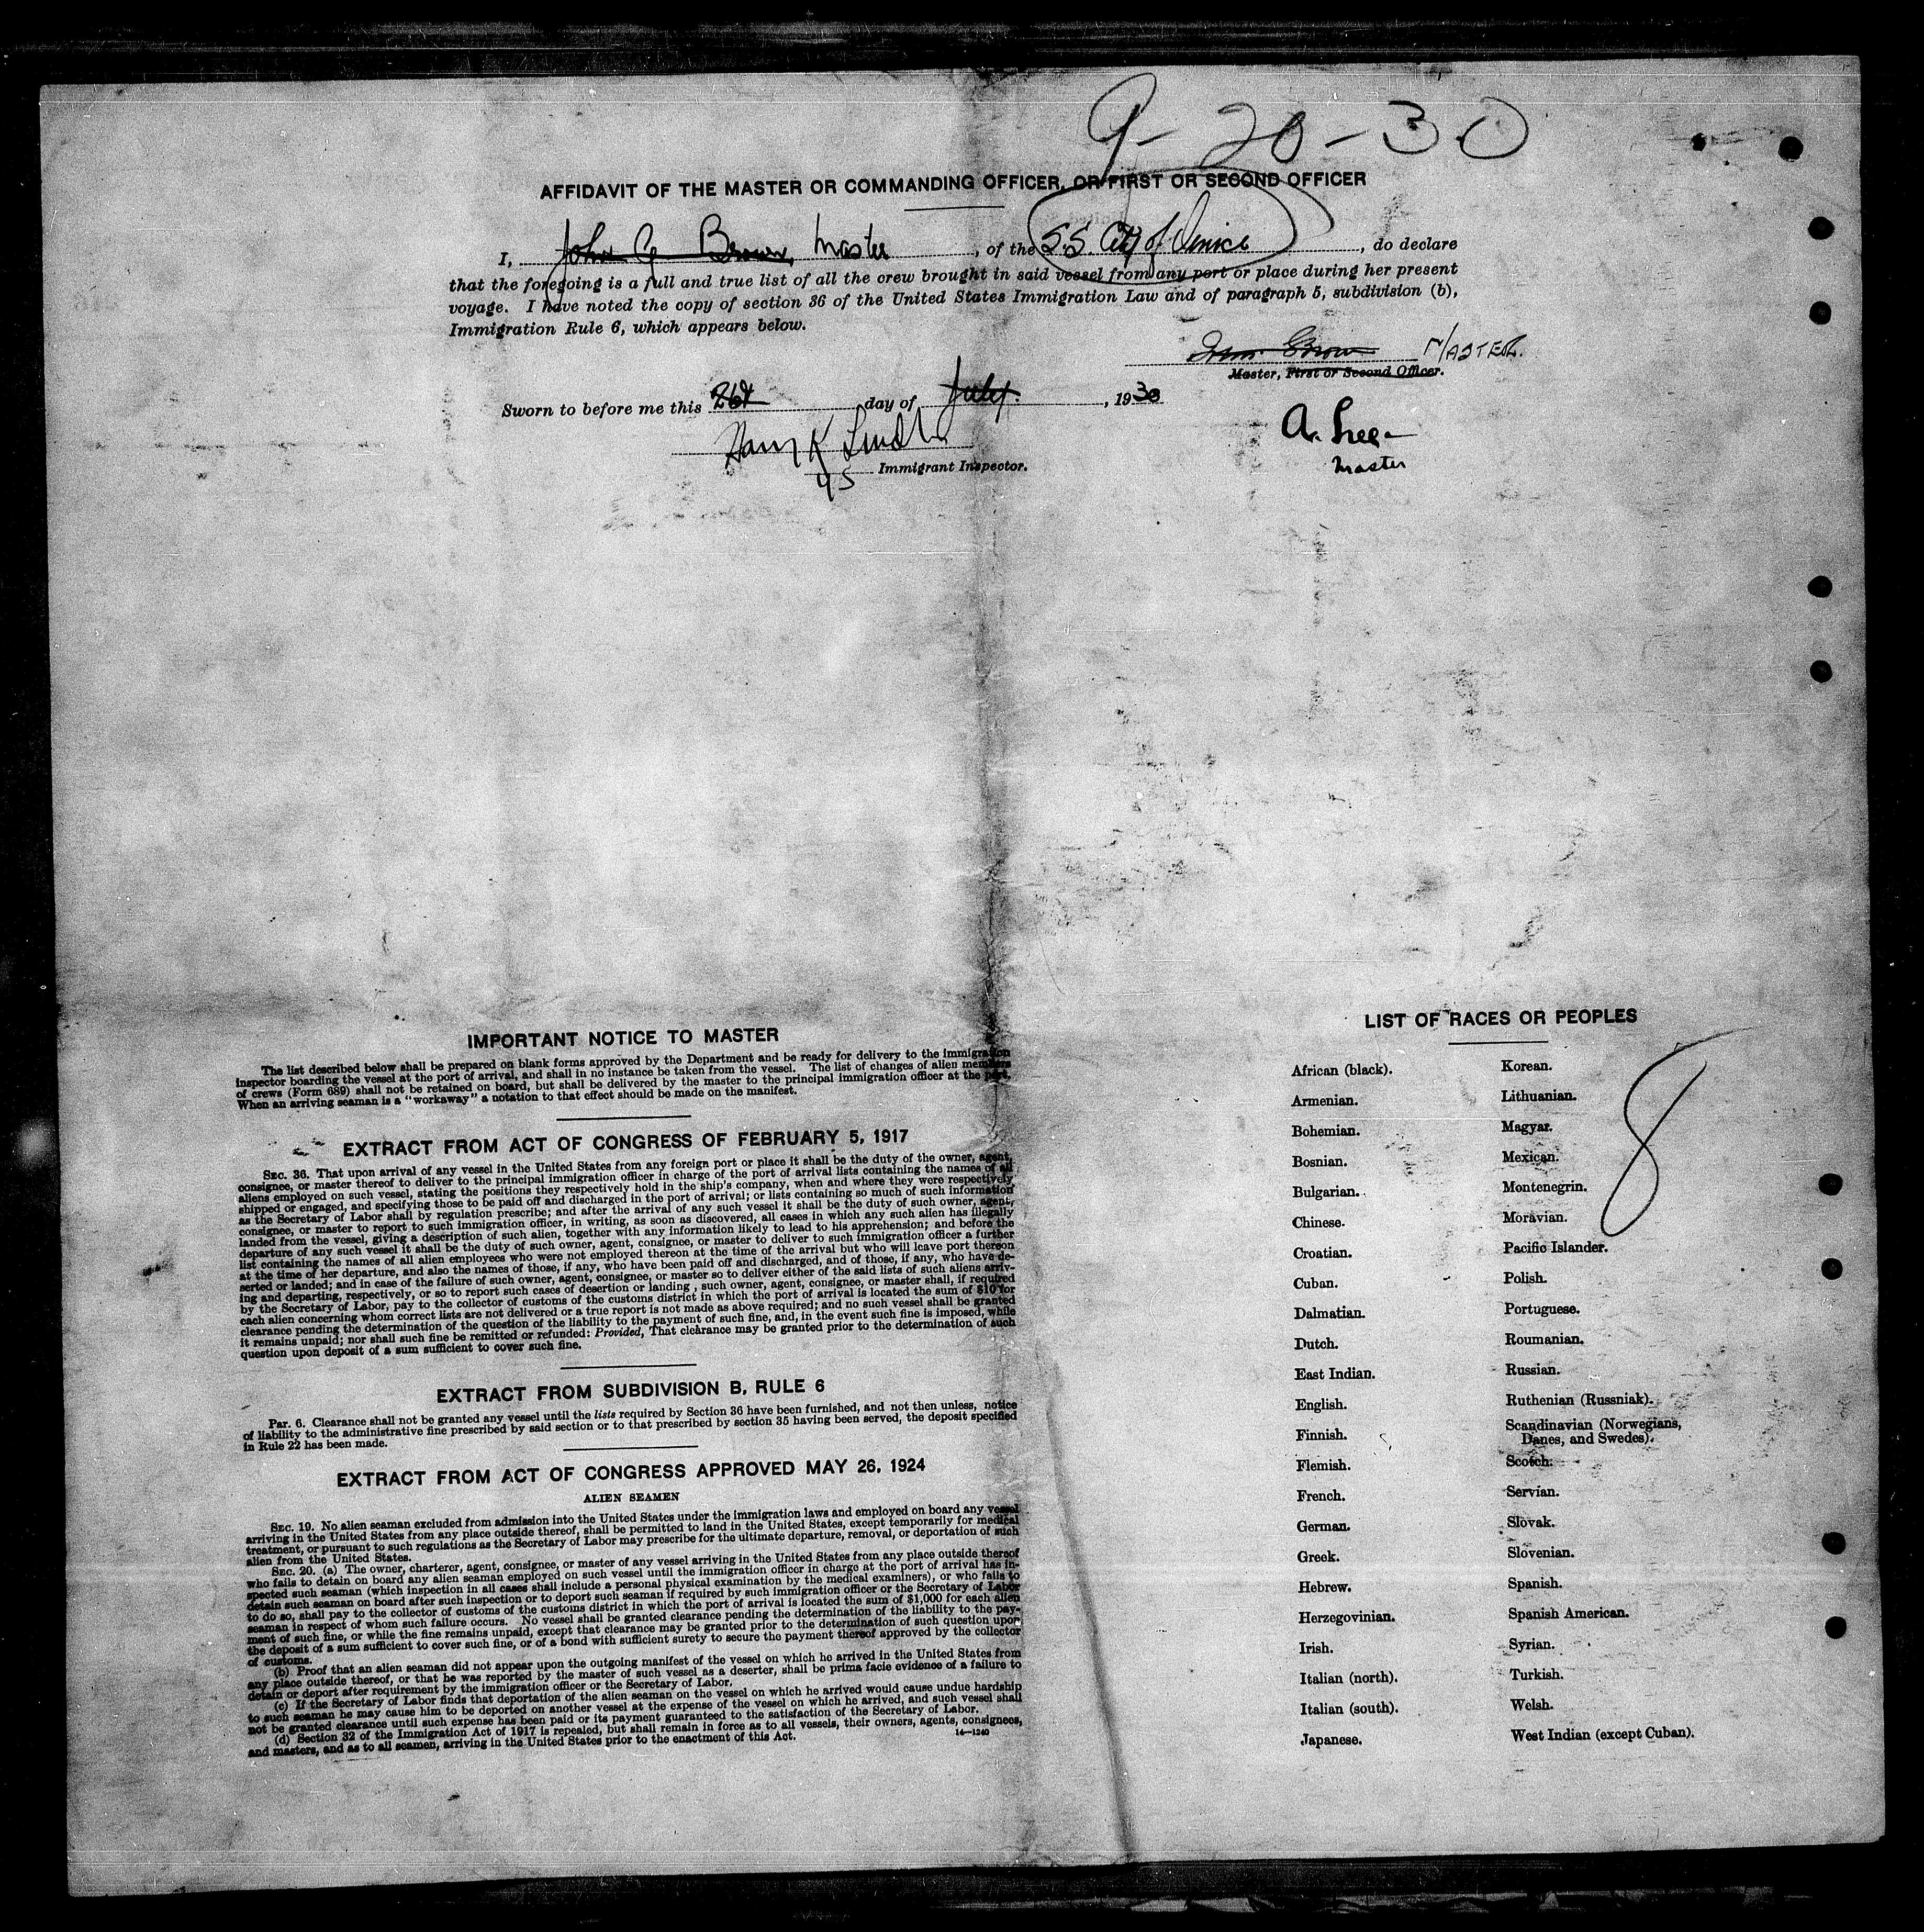 9-20-30
AFFIDAVIT OF THE MASTER OR COMMANDING OFFICER, OR FIRST OR SECOND OFFICER
I, John G Brown, Master, of the S.S. City of Venice, do declare
that the foregoing is a full and true list of all the crew brought in said vessel from any port or place during her present
voyage. I have noted the copy of section 36 of the United States Immigration Law and of paragraph 5, subdivision (b),
Immigration Rule 6, which appears below.
Brown MASTER.
Master, First or Second Officer.
Sworn to before me this 26th day of July, 1930
A. Lee
Master
Immigrant Inspector.
IMPORTANT NOTICE TO MASTER
The list described below shall be prepared on blank forms approved by the Department and be ready for delivery to the immigration
inspector boarding the vessel at the port of arrival, and shall in no instance be taken from the vessel. The list of changes of alien members
of crews (Form 689) shall not be retained on board, but shall be delivered by the master to the principal immigration officer at the port.
When an arriving seaman is a "workaway" a notation to that effect should be made on the manifest.
EXTRACT FROM ACT OF CONGRESS OF FEBRUARY 5, 1917
SEC. 36. That upon arrival of any vessel in the United States from any foreign port or place it shall be the duty of the owner, agent,
consignee, or master thereof to deliver to the principal immigration officer in charge of the port of arrival lists containing the names of all
aliens employed on such vessel, stating the positions they respectively hold in the ship's company, when and where they were respectively
shipped or engaged, and specifying those to be paid off and discharged in the port of arrival; or lists containing so much of such information
as the Secretary of Labor shall by regulation prescribe; and after the arrival of any such vessel it shall be the duty of such owner, agent,
consignee, or master to report to such immigration officer, in writing, as soon as discovered, all cases in which any such alien has illegally
landed from the vessel, giving a description of such alien, together with any information likely to lead to his apprehension; and before the
departure of any such vessel it shall be the duty of such owner, agent, consignee, or master to deliver to such immigration officer a further
list containing the names of all alien employees who were not employed thereon at the time of the arrival but who will leave port thereon
at the time of her departure, and also the names of those, if any, who have been paid off and discharged, and of those, if any, who have de-
serted or landed; and in case of the failure of such owner, agent, consignee, or master so to deliver either of the said lists of such aliens arriv-
ing and departing, respectively, or so to report such cases of desertion or landing, such owner, agent, consignee, or master shall, if required
by the Secretary of Labor, pay to the collector of customs of the customs district in which the port of arrival is located the sum of $10 for
each alien concerning whom correct lists are not delivered or a true report is not made as above required; and no such vessel shall be granted
clearance pending the determination of the question of the liability to the payment of such fine, and, in the event such fine is imposed, while
it remains unpaid; nor shall such fine be remitted or refunded: Provided, That clearance may be granted prior to the determination of such
question upon deposit of a sum sufficient to cover such fine.
EXTRACT FROM SUBDIVISION B, RULE 6
Par. 6. Clearance shall not be granted any vessel until the lists required by Section 36 have been furnished, and not then unless, notice
of liability to the administrative fine prescribed by said section or to that prescribed by section 35 having been served, the deposit specified
in Rule 22 has been made.
EXTRACT FROM ACT OF CONGRESS APPROVED MAY 26, 1924
ALIEN SEAMEN
SEC. 19. No alien seaman excluded from admission into the United States under the immigration laws and employed on board any vessel
arriving in the United States from any place outside thereof, shall be permitted to land in the United States, except temporarily for medical
treatment, or pursuant to such regulations as the Secretary of Labor may prescribe for the ultimate departure, removal, or deportation of such
alien from the United States.
SEC. 20. (a) The owner, charterer, agent, consignee, or master of any vessel arriving in the United States from any place outside thereof
who fails to detain on board any alien seaman employed on such vessel until the immigration officer in charge at the port of arrival has in-
spected such seaman (which inspection in all cases shall include a personal physical examination by the medical examiners), or who fails to
detain such seaman on board after such inspection or to deport such seaman if required by such immigration officer or the Secretary of Labor
to do so, shall pay to the collector of customs of the customs district in which the port of arrival is located the sum of $1,000 for each alien
seaman in respect of whom such failure occurs. No vessel shall be granted clearance pending the determination of the liability to the pay-
ment of such fine, or while the fine remains unpaid, except that clearance may be granted prior to the determination of such question upon
the deposit of a sum sufficient to cover such fine, or of a bond with sufficient surety to secure the payment thereof approved by the collector
of customs.
(b) Proof that an alien seaman did not appear upon the outgoing manifest of the vessel on which he arrived in the United States from
any place outside thereof, or that he was reported by the master of such vessel as a deserter, shall be prima facie evidence of a failure to
detain or deport after requirement by the immigration officer or the Secretary of Labor.
(c) If the Secretary of Labor finds that deportation of the alien seaman on the vessel on which he arrived would cause undue hardship
to such seaman he may cause him to be deported on another vessel at the expense of the vessel on which he arrived, and such vessel shall
not be granted clearance until such expense has been paid or its payment guaranteed to the satisfaction of the Secretary of Labor.
(d) Section 32 of the Immigration Act of 1917 is repealed, but shall remain in force as to all vessels, their owners, agents, consignees,
and masters, and as to all seamen, arriving in the United States prior to the enactment of this Act.
14—1240
LIST OF RACES OR PEOPLES
African (black).
Armenian.
Bohemian.
Bosnian.
Bulgarian.
Chinese.
Croatian.
Cuban.
Dalmatian.
Dutch.
East Indian.
English.
Finnish.
Flemish.
French.
German.
Greek.
Hebrew.
Herzegovinian.
Irish.
Italian (north).
Italian (south).
Japanese.
Korean.
Lithuanian.
Magyar.
Mexican.
Montenegrin.
Moravian.
Pacific Islander.
Polish.
Portuguese.
Roumanian.
Russian.
Ruthenian (Russniak).
Scandinavian (Norwegians,
Danes, and Swedes).
Scotch.
Servian.
Slovak.
Slovenian.
Spanish.
Spanish American.
Syrian.
Turkish.
Welsh.
West Indian (except Cuban).
8